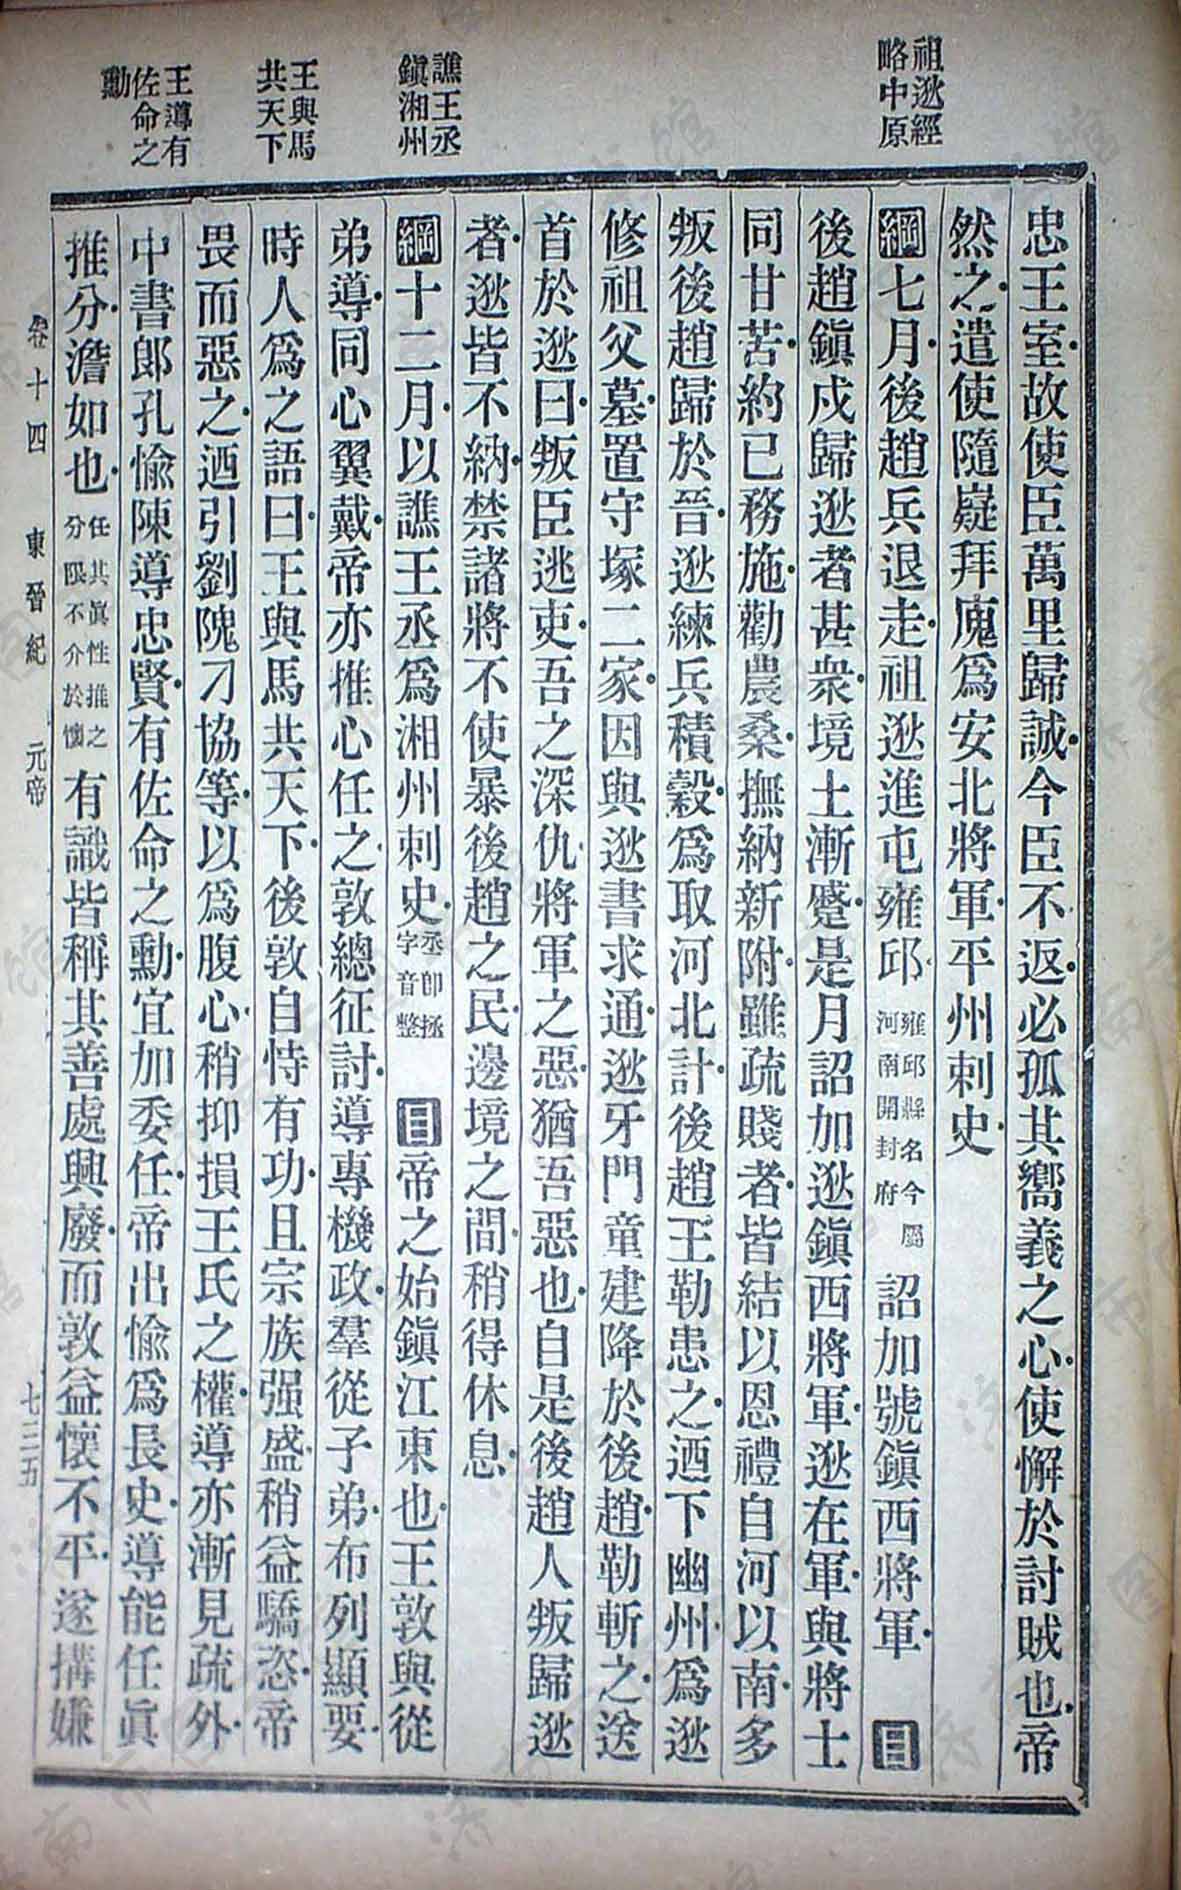 祖逖經
略中原
譙王丞
鎭湘州
王與馬
共天下
王導有
佐命之
勳
忠王室故使臣萬里歸誠今臣不返必孤其嚮義之心使懈於討賊也帝
然之遣使隨嶷拜廆爲安北將軍平州刺史
綱七月後趙兵退走祖逖進屯雍邱雍邱縣名今屬河南開封府詔加號鎭西將軍目
後趙鎭戍歸逖者甚衆境土漸蹙是月詔加逖鎭西將軍逖在軍與將士
同甘苦約已務施勸農桑撫納新附雖疏賤者皆結以恩禮自河以南多
叛後趙歸於晉逖練兵積穀爲取河北計後趙王勒患之迺下幽州爲逖
修祖父墓置守塚二家因與逖書求通逖牙門童建降於後趙勒斬之送
首於逖曰叛臣逃吏吾之深仇將軍之惡猶吾惡也自是後趙人叛歸逖
者逖皆不納禁諸將不使暴後趙之民邊境之間稍得休息
綱十二月以譙王丞爲湘州刺史丞卽拯字音整目帝之始鎭江東也王敦與從
弟導同心翼戴帝亦推心任之敦總征討導專機政羣從子弟布列顯要
時人爲之語曰王與馬共天下後敦自恃有功且宗族强盛稍益驕恣帝
畏而惡之迺引劉隗刁協等以爲腹心稍抑損王氏之權導亦漸見疏外
中書郎孔愉陳導忠賢有佐命之勳宜加委任帝出愉爲長史導能任眞
推分澹如也任其眞性推之分限不介於懷有識皆稱其善處興廢而敦益懷不平遂搆嫌
卷十四 東晉紀 元帝 七三五